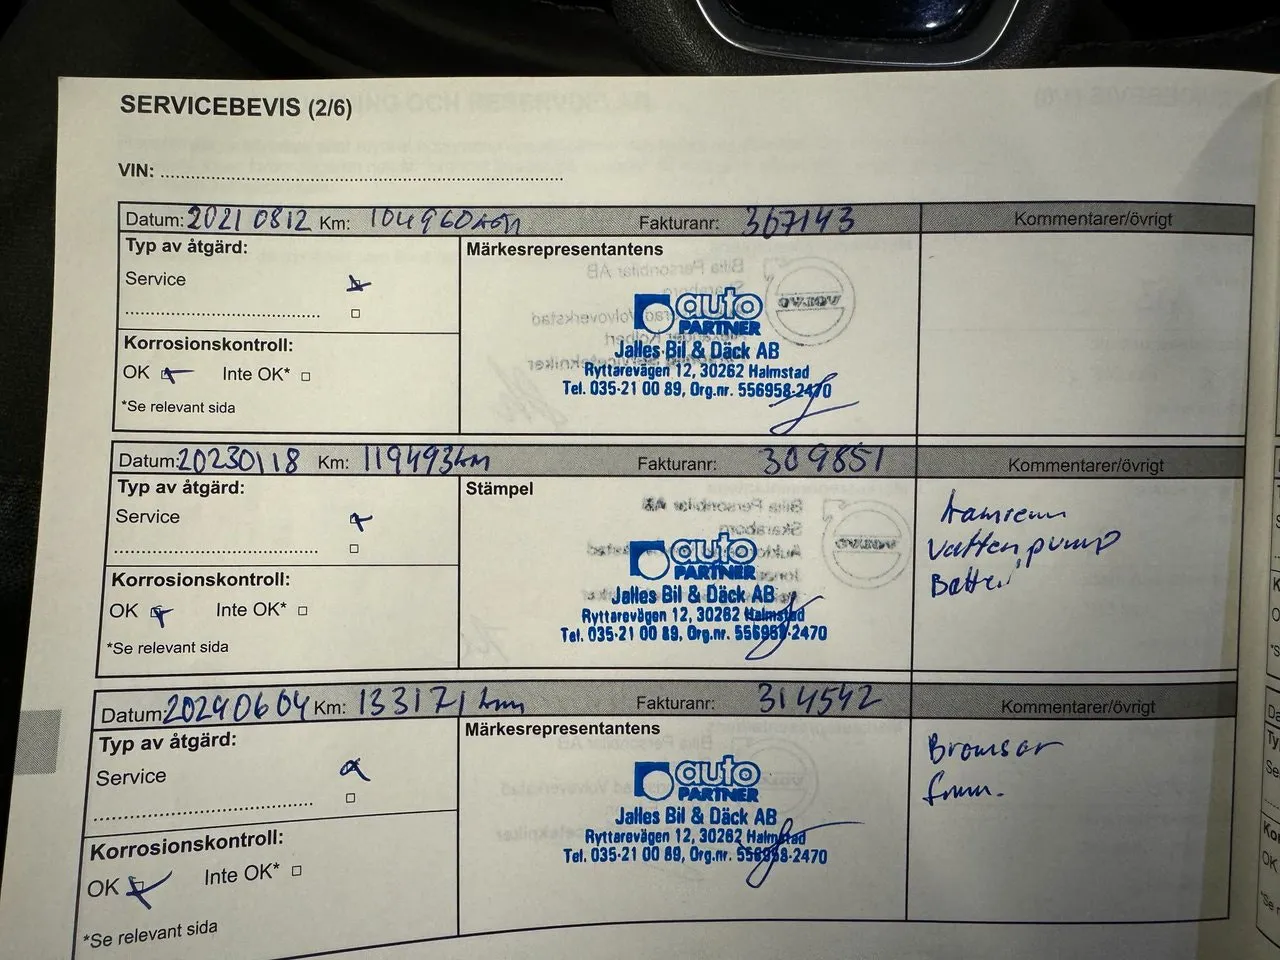 SERVICEBEVIS (2/6)
VIN: ........................................................................
Datum: 20210812 Km: 104960 Fakturanr: 307143 Kommentarer/övrigt
Typ av åtgärd: Märkesrepresentantens
Service
OK Inte OK*
Korrosionskontroll:
*Se relevant sida
auto
PARTNER
Jalles Bil & Däck AB
Ryttarevägen 12, 30262 Halmstad
Tel. 035-21 00 89, Org.nr. 556958-2470
Datum: 20230118 Km: 119493km Fakturanr: 309851 Kommentarer/övrigt
Typ av åtgärd: Stämpel
Service
Korrosionskontroll:
OK Inte OK*
*Se relevant sida
auto
PARTNER
Jalles Bil & Däck AB
Ryttarevägen 12, 30262 Halmstad
Tel. 035-21 00 89, Org.nr. 556958-2470
kamrem
Vattenpump
Batteri
Datum: 20240604 Km: 133171 km Fakturanr: 314542 Kommentarer/övrigt
Typ av åtgärd: Märkesrepresentantens
Service
Korrosionskontroll:
OK Inte OK*
*Se relevant sida
auto
PARTNER
Jalles Bil & Däck AB
Ryttarevägen 12, 30262 Halmstad
Tel. 035-21 00 89, Org.nr. 556958-2470
Bromsar
fram.